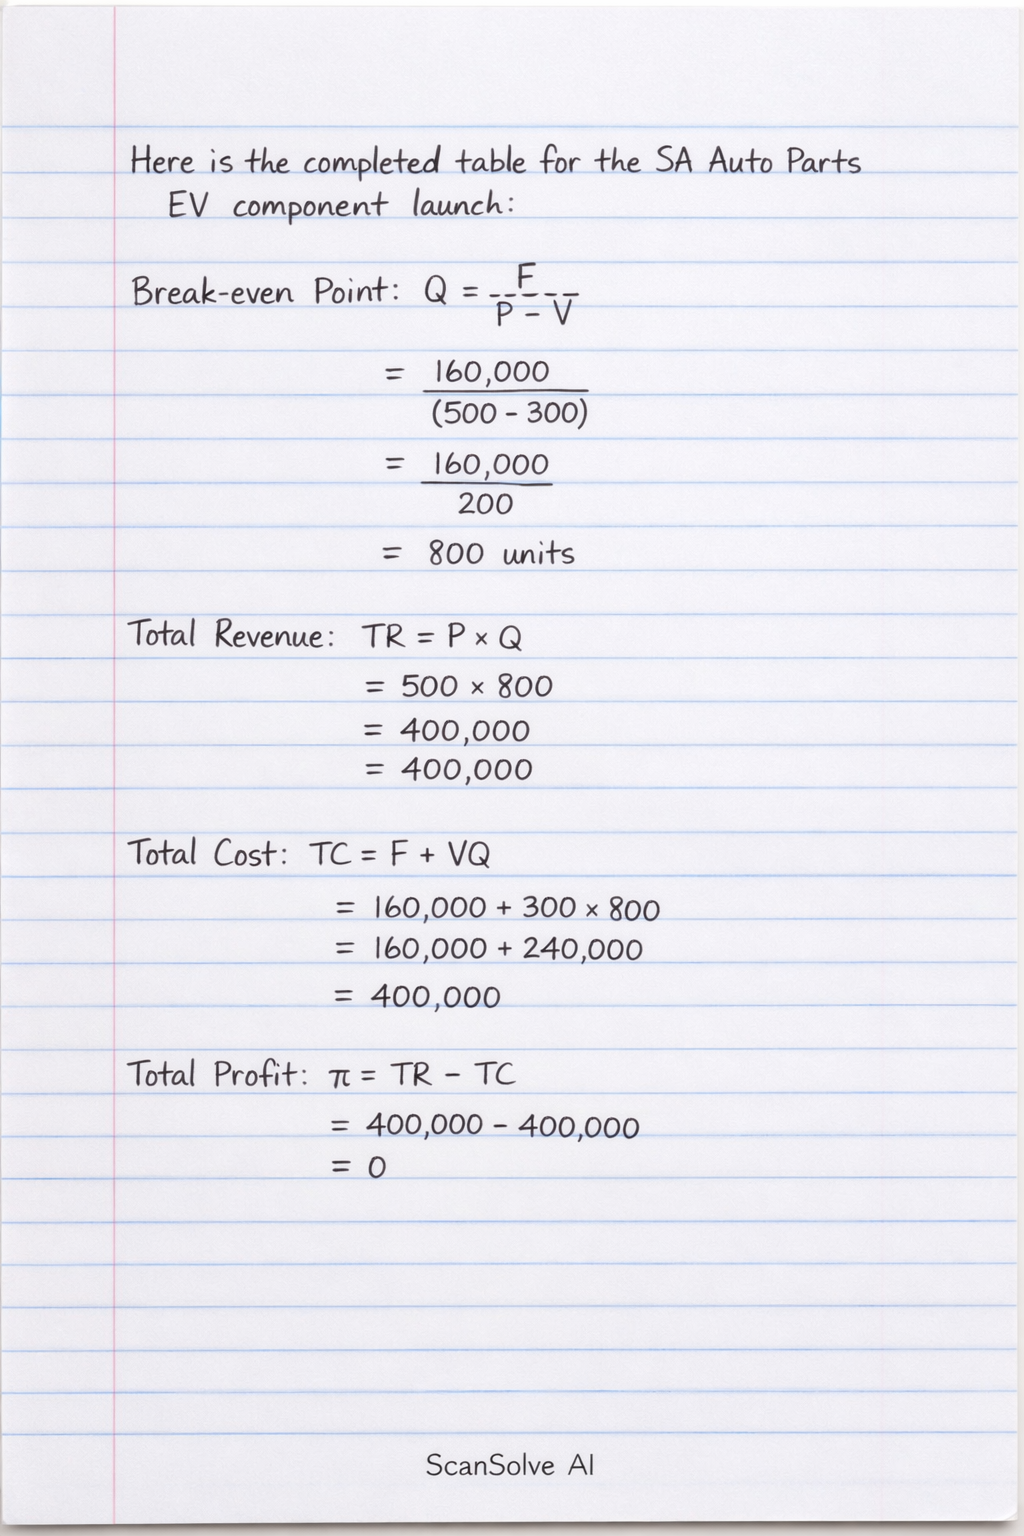 Here is the completed table for the SA Auto Parts
EV component launch:
Break-even Point: Q = F
P - V
= 160,000
(500 - 300)
= 160,000
200
= 800 units
Total Revenue: TR = P × Q
= 500 × 800
= 400,000
= 400,000
Total Cost: TC = F + VQ
= 160,000 + 300 × 800
= 160,000 + 240,000
= 400,000
Total Profit: π = TR - TC
= 400,000 - 400,000
= 0
ScanSolve AI